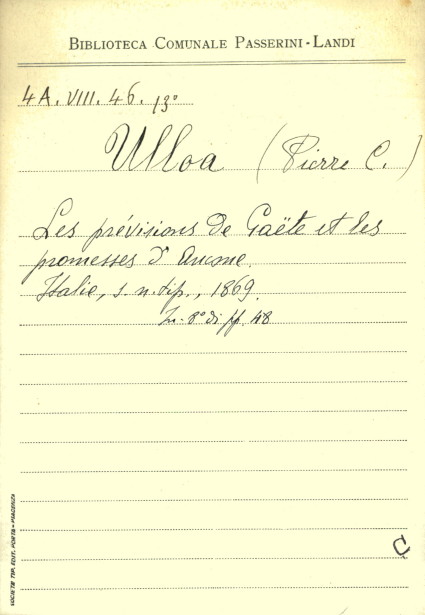 BIBLIOTECA COMUNALE PASSERINI-LANDI
4A. VIII. 46. 13°
Ulloa (Pierre C.)
Les prévisions de Gaëte et les
promesses d'Ancone.
Italie, s. n. tip., 1869.
In-8° di pp. 48
C
SOCIETÀ TIP. EDIT. PORTA - PIACENZA